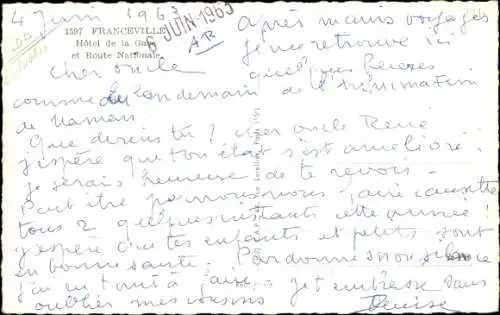 4 Juin 1963
6 JUIN 1963
AR
1597 FRANCEVILLE
Hôtel de la Gare
et Route Nationale
Cher oncle
après maints voyages
je me retrouve ici
quelques heures
comme au lendemain de l'inhumation
de Maman
Que deviens tu ? Cher oncle René
j'espère que ton état s'est amélioré.
je serais heureuse de te revoir.
Peut être pourrons nous faire causette
tous 2 quelques instants cette année !
j'espère que tes enfants et petits sont
en bonne santé. Pardonne mon silence
j'ai eu tant à faire. je t'embrasse sans
oublier mes cousins
Denise